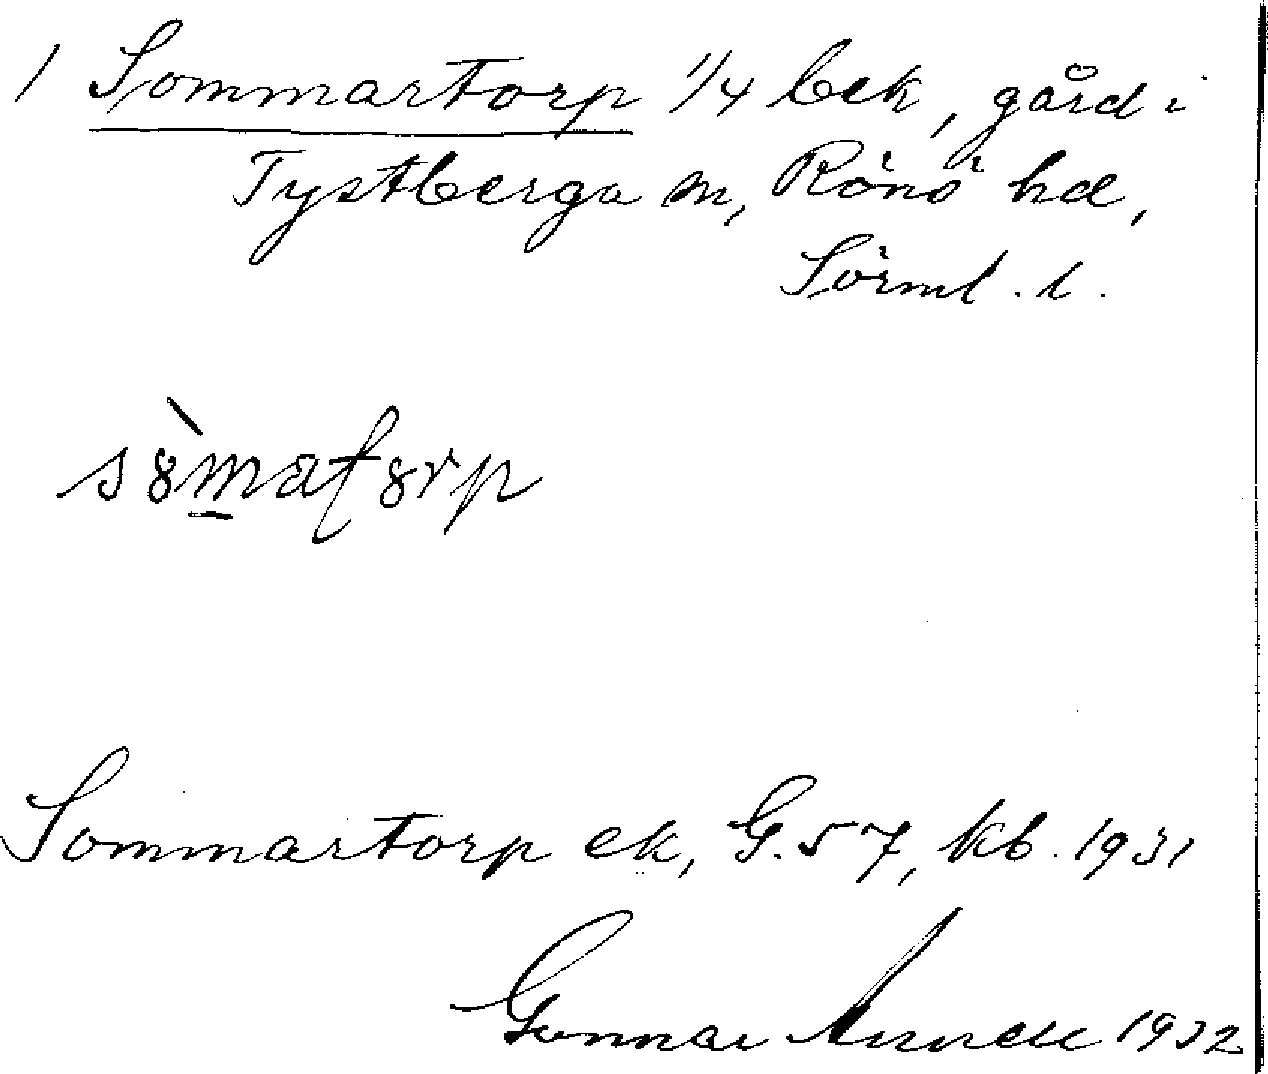 1 Sommartorp 1/4 bek, gård i
Tystberga sn, Rönö hd,
Sörml. l.
Sommartorp ek, G. 57, kb. 1931
Gunnar 1932